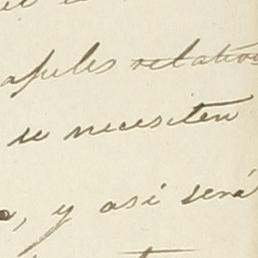 apeles relativo
se necesiten
, y así será